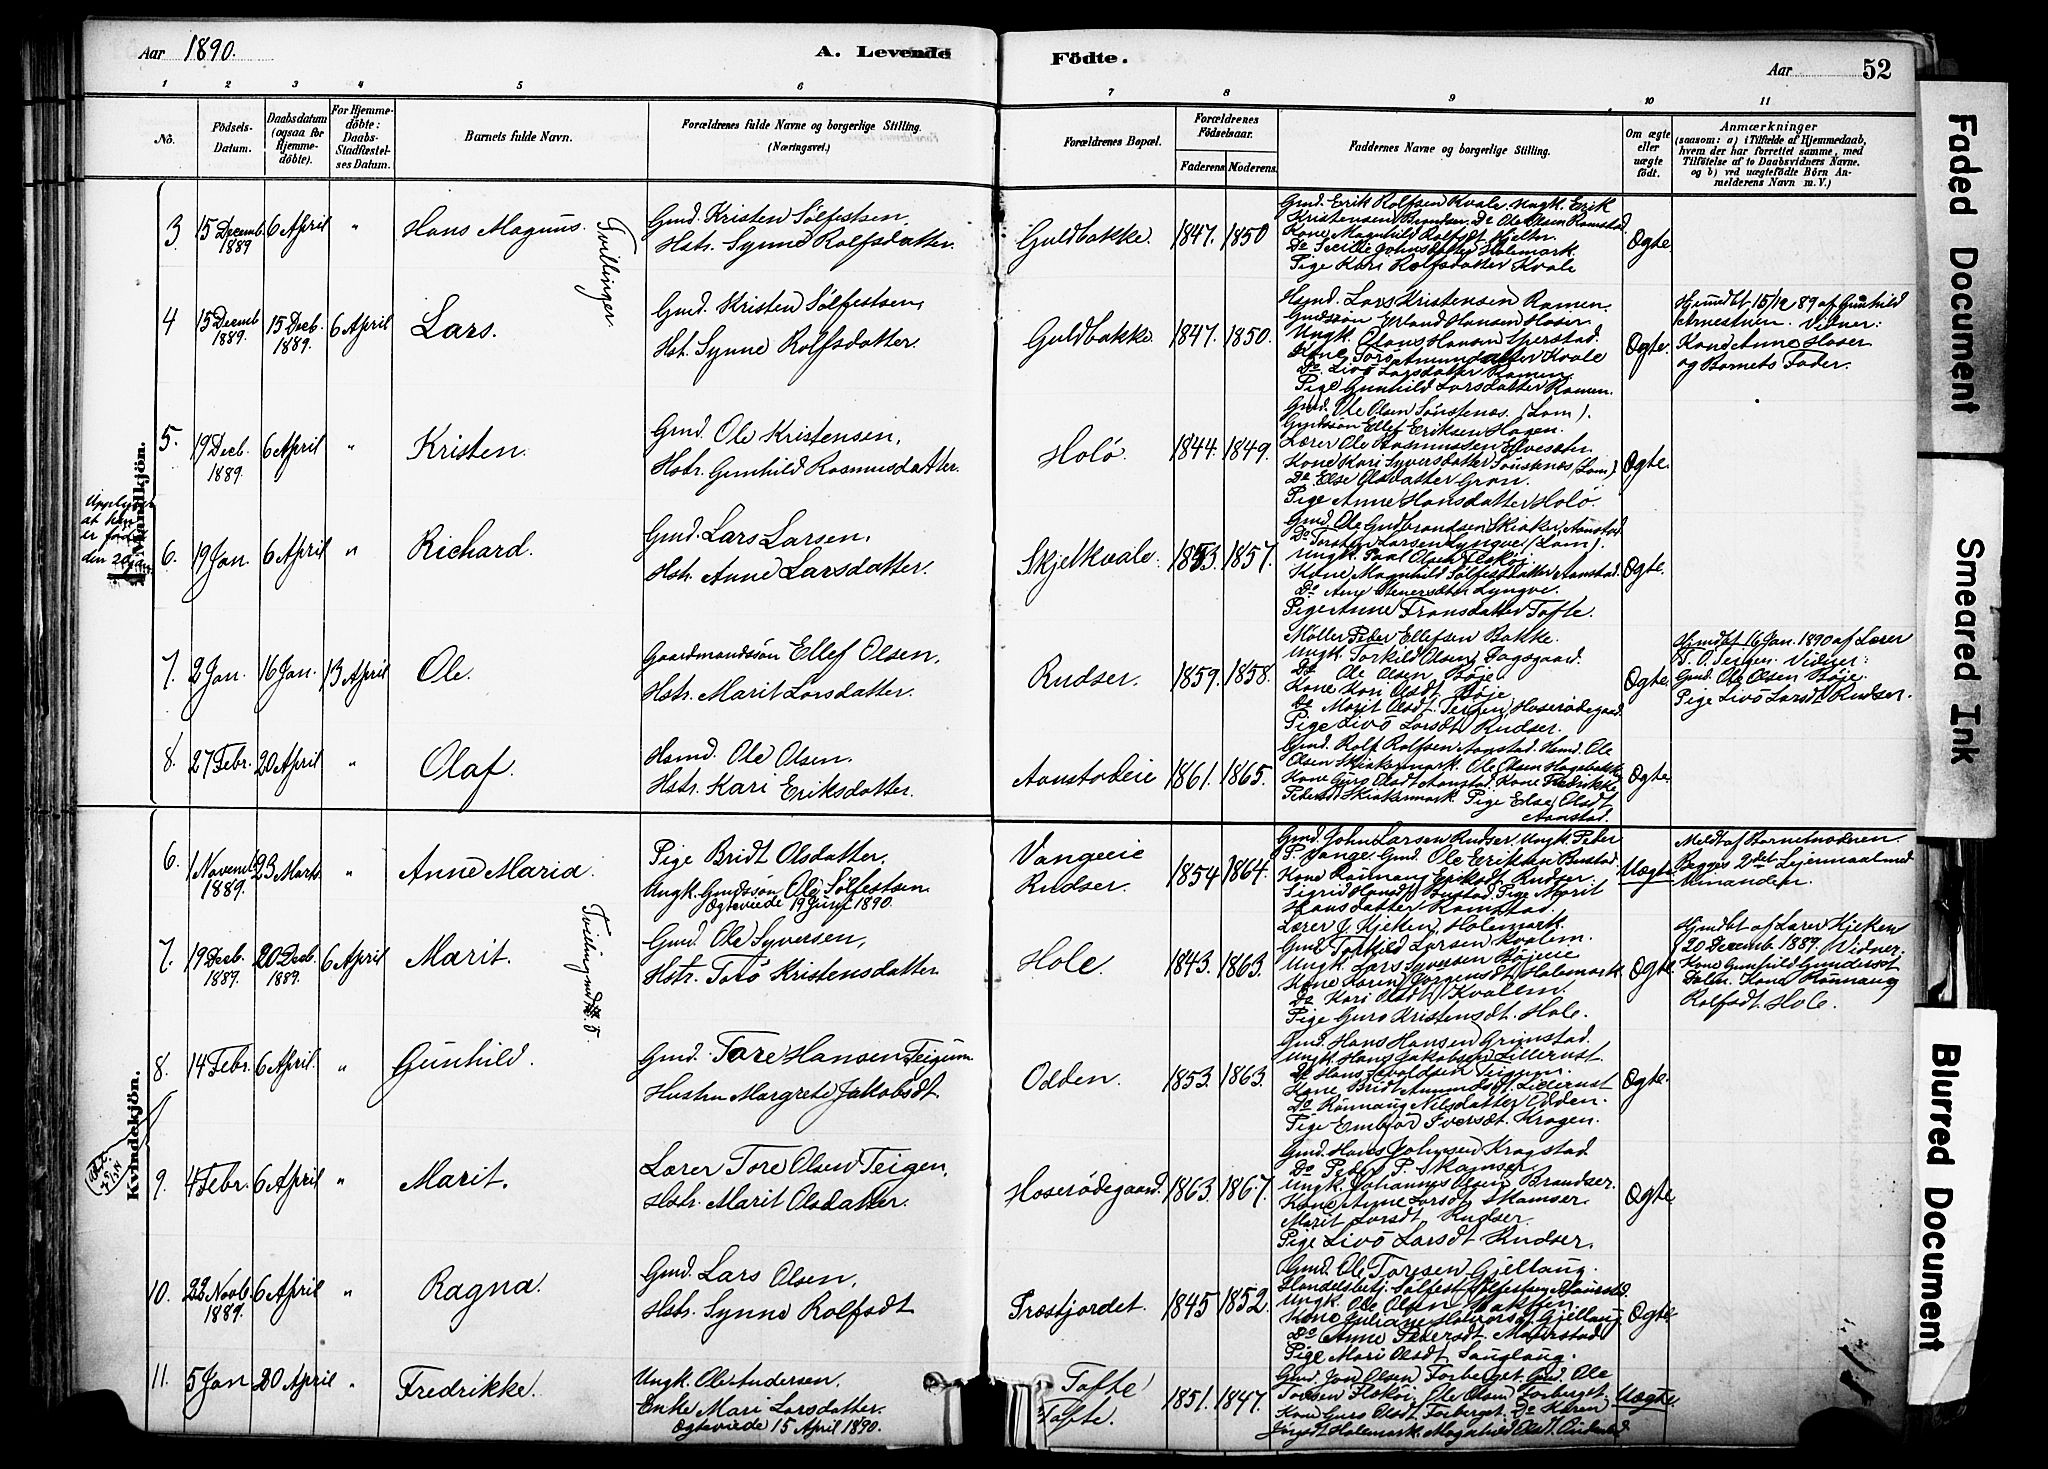 Aar 1890.
A. Levende Födte.
Aar 52
1 2 3 4 5 6 7 8 9 10 11
No.
Födsels-Datum.
Daabsdatum (ogsaa for Hjemme-döbte).
For Hjemme-döbte: Daabs-Stadfæstel-ses Datum.
Barnets fulde Navn.
Forældrenes fulde Navne og borgerlige Stilling.
(Næringsvei.)
Forældrenes Bopæl.
Forældrenes Födselsaar.
Faderens Moderens
Faddernes Navne og borgerlige Stilling.
Om ægte eller uægte födt.
Anmærkninger
(saasom: a) i Tilfælde af Hjemmedaab,
hvem der har forrettet samme, med
Tilföielse af to Daabsvidners Navne.
og b) ved uægtefödte Börn An-
melderens Navn m. V.)
Mandkjön.
3 15 Decemb 1889 6 April " Hans Magnus. Tvillinger
Gmd. Kristen Sølfestsen,
Hstr. Synne Rolfsdatter.
Guldbakke. 1847. 1850
Gmd. Erik Rolfsen Kvale. Ungk. Erik
Kristensen Brandser. Do Ole Olsen Ramstad.
Kone Magnhild Rolfsdt Hjelter.
Do Secilie Johnsdatter Holemark.
Pige Kari Rolfsdatter Kvale
Ægte.
4 15 Decemb 1889. 15 Decb. 1889. 6 April Lars.
Gmd. Kristen Sølfestsen,
Hst. Synne Rolfsdatter.
Guldbakke 1847. 1850.
Hsmd. Lars Kristensen Ramen.
Gmdssøn Erland Hansen Hoser.
Ungk. Hans Hansen
Kone Tore Amundsdatter Kvale
Do. Livö Larsdatter Ramen.
Pige Gunhild Larsdatter Ramen.
Ægte.
Hjmdbt 15/12 89 af Gunhild
Vidner:
Kone Anne Hoser
og Barnets Fader.
5. 19 Decb. 1889. 6 April " Kristen.
Gmd. Ole Kristensen,
Hstr. Gunhild Rasmusdatter.
Holö 1844. 1849.
Gmd. Ole Olsen Sönstenæs. (Lom).
Gmdssøn Ellef Eriksen Hagen.
Lærer Ole Rasmussen
Kone Kari Syversdatter Sönstenæs (Lom)
Do. Else Olsdatter Grøn.
Pige Anne Hansdatter Holö.
Ægte.
at han
er født
den 20 Jan.
6. 19 Jan. 6 April " Richard.
Gmd. Lars Larsen,
Hstr. Anne Larsdatter.
Skjelkvale. 1853. 1857.
Gmd. Ole Gudbrandsen Skiaker Aamstad
Do Torsten Larsen Lyngve (Lom).
Ungk. Paal Olsen Flekøi
Kone Magnhild Sølfestdatter Aamstad.
Do Anne Stenersdtr Lyngve.
Pige Anne Fransdatter Tofte.
Ægte.
7. 2 Jan. 16 Jan. 13 April Ole.
Gaardmandssön Ellef Olsen,
Hstr. Marit Larsdatter.
Rudser. 1859. 1858.
Møller Peder Ellefsen Bakke.
Ungk. Torkild Olsen Dagsgaard.
Do Ole Olsen Böje
Kone Kari Olsdt. Böje
Do Marit Olsdt. Teigen, Hoserödegaard.
Pige Livö Larsdt Rudser.
Ægte
Hjmdbt 16 Jan. 1890 af Lærer
T. O. Teigen. Vidner:
Gmd. Ole Olsen Böje.
Pige Livö Larsdt Rudser.
8. 27 Febr. 20 April " Olaf.
Hsmd. Ole Olsen.
Hstr. Kari Eriksdatter.
Aamstadeie 1861. 1865.
Gmd. Rolf Rolfsen Aamstad. Hsmd. Ole
Olsen Skiakermark. Ole Olsen Hagebakke
Kone Guro Olsdt Aamstad. Kone Fredrikke
Pedersdt Skiakermark. Pige Else Olsdt
Aamstad.
Ægte
Kvindekjön.
6. 1 Novemb. 1889. 23 Marts " Anne Maria.
Pige Bridt Olsdatter.
Ungk. Gmdssön Ole Sølfestsen
Ægteviede 19 Juni 1890.
Vangeeie
Rudser. 1854 1864.
Gmd. John Larsen Rudser. Ungk. Peder
P. Vange. Gmd. Ole Eriksen Bustad.
Kone Rönnaug Eriksdt Rudser.
Sigrid Hansdt Bustad. Pige Marit
Hansdatter Ramstad.
Uægte.
Meldt af Barnemoderen.
Begges 2det Leiermaal med
7. 19 Decb. 1889. 20 Decb. 1889. 6 April Marit. Tvilling
Gmd. Ole Syversen,
Hstr. Torö Kristensdatter
Hole. 1843. 1863.
Lærer J. Kjeken, Holemark.
Gmd. Torkild Larsen Kvalem.
Ungk. Lars Syversen Böjeeie
Kone Karen Jörgensdt Holemark
Do Kari Olsdt Kvalem.
Pige Guro Kristensdt. Hole.
Ægte
Hjmdbt af Lærer Kjeken
20 Decemb 1889. Vidner:
Kone Gunhild Gundersdt
Dalen. Kone Rönnaug
Rolfsdt Hole.
8. 14 Febr. 6 April. " Gunhild.
Gmd. Tore Hansen Teigum
Hustru Margrete Jakobsdt
Odden. 1853. 1863.
Gmd. Hans Hansen Grimstad.
Ungk. Hans Jakobsen Lillerust.
Do Hans Teigum.
Kone Bridt Amundsdt. Lillerust
Do Rönnaug Nilsdatter Odden.
Pige Embjør Iversdt. Kragen.
Ægte.
9. 4 Febr. 6 April " Marit.
Lærer Tore Olsen Teigen,
Hstr. Marit Olsdatter.
Hoserödegaard. 1863. 1867.
Gmd. Hans Johnsen Kragstad
Do Peder P. Skamser.
Ungk. Johannes Olsen Brandser.
Kone Anne Larsdt Skamser.
Marit Larsdt Rudser.
Pige Livö Larsdt Rudser.
Ægte
10. 22 Novb. 1889. 6 April " Ragna.
Gmd. Lars Olsen,
Hstr. Synne Rolfsdt
Præstjordet. 1845 1852.
Gmd. Ole Toresen Gjellaug.
Handelsbetj. Sølfest Sølfestsen Aamstad.
Ungk. Ole Olsen Bakken.
Kone Juliane Halvorsdt Gjellaug
Do Anne Pedersdt
Pige Mari Olsdt
Ægte
11. 5 Jan 20 April " Fredrikke.
Ungk. Ole Andersen.
Enke Mari Larsdatter.
Ægteviede 15 April 1890.
Tofte
Tofte. 1851. 1847.
Gmd. Jon Olsen Forberget. Gmd. Ole
Toresen Flekøi. Ole Olsen Forberget.
Kone Guro Olsdt Forberget. Do Karen
Jörgsdt Holemark. Magnhild Olsdt.
Uægte.
Faded Document
Smeared Ink
Blurred Document